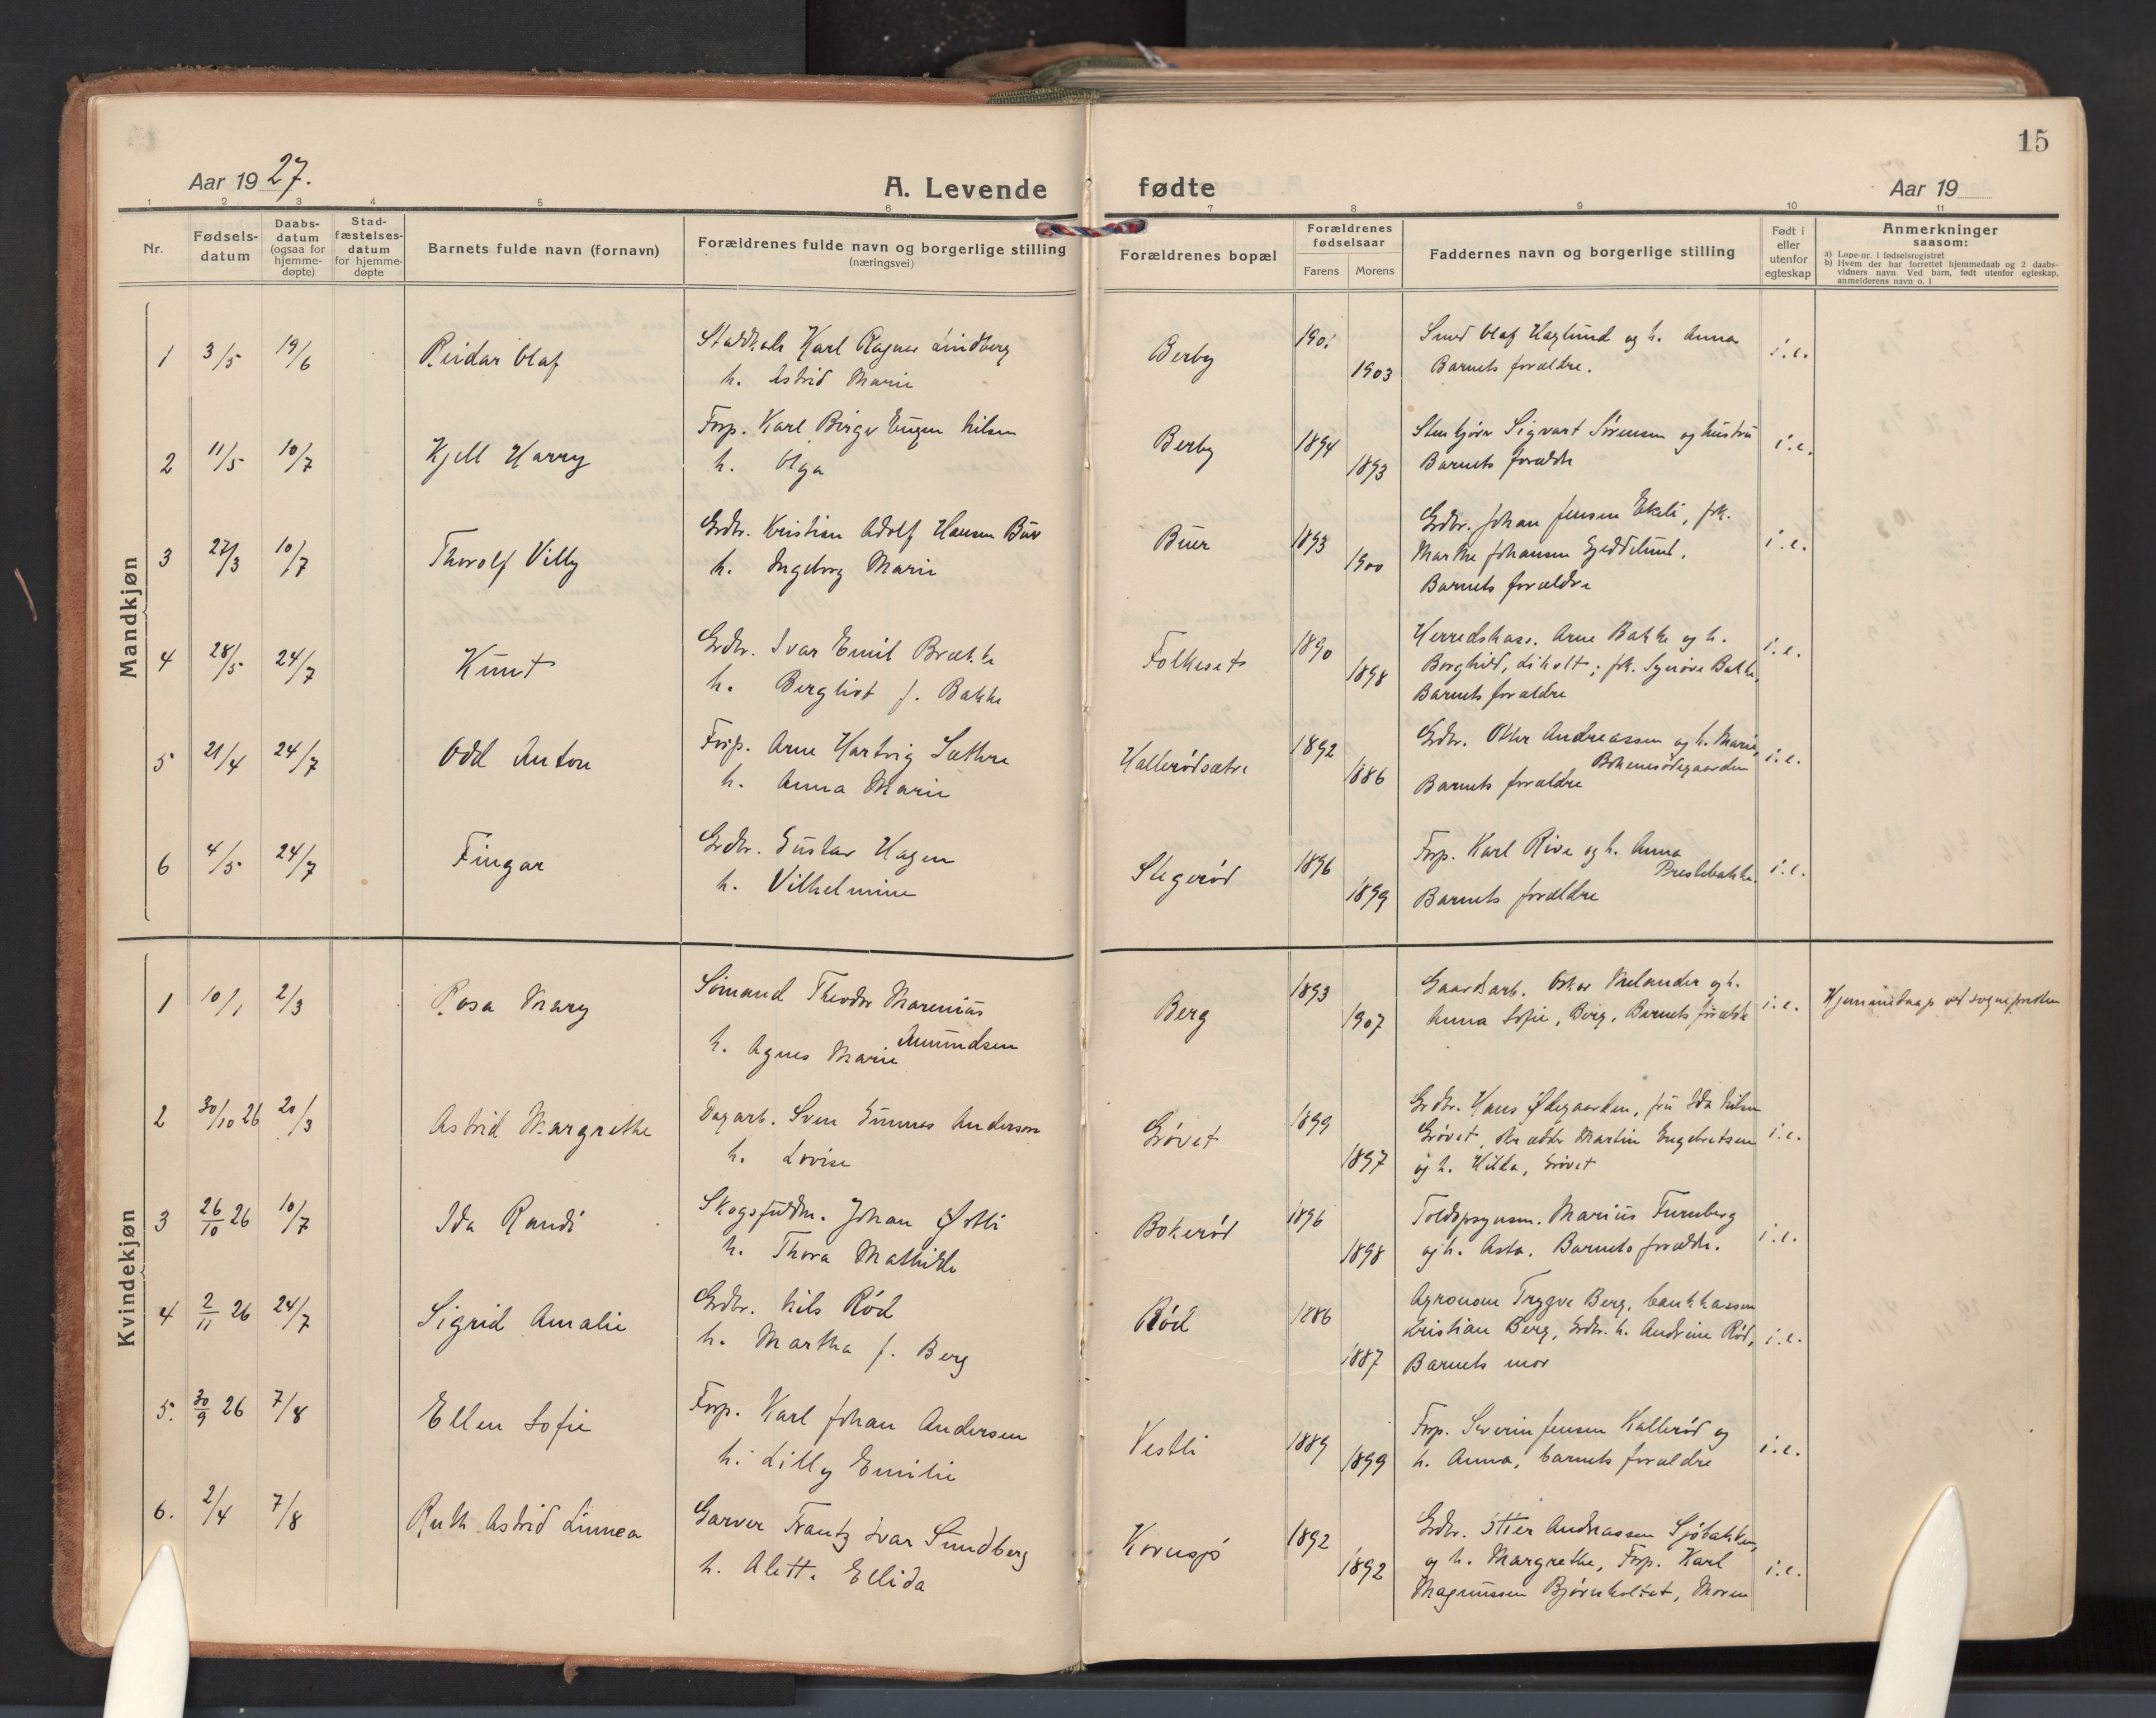 15
Aar 1927.
A. Levende fødte
Aar 19
1 2 3 4 5 6 7 8 9 10 11
Nr.
Fødsels-
datum
Daabs-
datum
(ogsaa for
hjemme-
døpte)
Stad-
fæstelses-
datum
for hjemme-
døpte
Barnets fulde navn (fornavn)
Forældrenes fulde navn og borgerlige stilling
(næringsvei)
Forældrenes bopæl
Forældrenes
fødselsaar
Farens Morens
Faddernes navn og borgerlige stilling
Født i
eller
utenfor
egteskap
Anmerkninger
saasom:
a) Løpe-nr. i fødselsregistret
b) Hvem der har forrettet hjemmedaab og 2 daabs-
vidners navn. Ved barn, født utenfor egteskap,
anmelderens navn o. l
Mandkjøn
1 3/5 19/6 Reidar Olaf
Karl Ragnar Lindberg
h. Astrid Marie
Berby 1901 1903
Smed Olaf Haglund og h. Anna
Barnets forældre.
i.e.
2 11/5 10/7 Kjell Harry
Forp. Karl Birger Eugen Nilsen
h. Olga
Berby 1894 1893
Stenhjører Sigvart Sørensen og hustru
Barnets forældre
i.e.
3 27/3 10/7 Thorolf Villy
Grdbr. Kristian Adolf Hansen Buer
h. Ingeborg Marie
Buer 1893 1900
Grdbr. Johan Jensen Ekeli, frk.
Marthe Johansen
Barnets forældre
i.e.
4 28/5 24/7 Knut
Grdbr. Ivar Emil Brække
h. Bergliot f. Bakke
Folkeset 1890 1898
Herredskass. Arne Bakke og h.
Borghild, Liholt; frk. Synøve Bakke,
Barnets forældre
i.e.
5 21/4 24/7 Odd Anton
Forp. Arne Hartvig Sæthre
h. Anna Marie
Hallerødsætre 1892 1886
Grdbr. Otter Andreassen og h. Marie,
Bokerødegaarden
Barnets forældre
i.e.
6 4/5 24/7 Fingar
Grdbr. Gustav Hagen
h. Vilhelmine
Stegerød 1896 1899
Forp. Karl Rive og h. Anna
Prestebakke.
Barnets forældre
i.e.
Kvindekjøn
1 10/1 2/3 Rosa Mary
Sømand Theodor Marenius
Amundsen
h. Agnes Marie
Berg 1893 1907
Gaardsarb. Oskar Melander og h.
Anna Sofie, Berg, Barnets forældre
i.e.
Hjemmedaap ved sognepresten
2 30/10 26 20/3 Astrid Margrethe
Dagarb. Sven Gunnar Anderson
h. Lovise
Grøvet 1899 1897
Grdbr. Hans Ødegaarden, fru Ida Nilsen
Grøvet, Skrædder Martin Engebretsen
og h. Hilda, Grøvet
i.e.
3 26/10 26 10/7 Ida Randi
Skogsfuldm. Johan Østli
h. Thora Mathilde
Bokerød 1896 1898
Toldopsynsm. Marius Furuberg
og h. Asta. Barnets forældre.
i.e.
4 2/11 26 24/7 Sigrid Amalie
Grdbr. Nils Rød
h. Martha f. Berg
Rød 1886 1887
Agronom Trygve Berg, bankkasserer
Kristian Berg, Grdbr. h. Andrine Rød,
Barnets mor
i.e.
5. 30/9 26 7/8 Ellen Sofie
Forp. Karl Johan Andersen
h. Lilly Emilie
Vestli 1889 1899
Forp. Severin Jensen Kallerød og
h. Anna, barnets forældre
i.e.
6. 2/4 7/8 Ruth Astrid Linnea
Garver Frantz Ivar Sundberg
h. Alette Elida
Kornsjø 1892 1892
Grdbr. Otter Andreassen Sjøbakken,
og h. Margrethe, Forp. Karl
Magnussen Bjørnholtet, Moren
i.e.